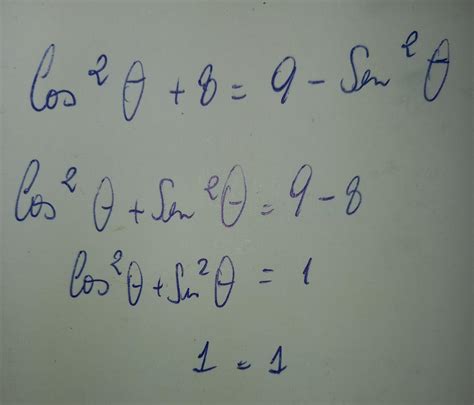 Cos²θ + 8 = 9 - Sen²θ
Cos²θ + Sen²θ = 9 - 8
Cos²θ + Sen²θ = 1
1 = 1